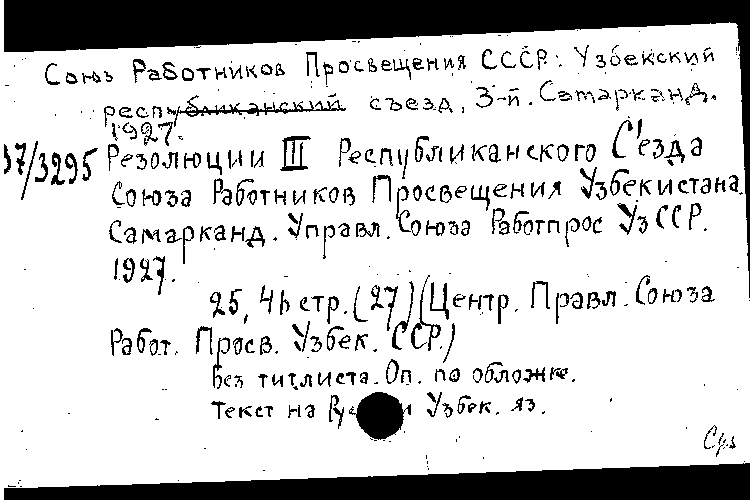 Союз Работников Просвещения СССР. Узбекский
республиканский съезд, 3-й. Самарканд.
1927.
37/3295 Резолюции III Республиканского С'езда
Союза Работников Просвещения Узбекистана.
Самарканд. Управл. Союза Работпрос УзССР.
1927.
25, 4b стр. (27) (Центр. Правл. Союза
Работ. Просв. Узбек. ССР.)
Без титлиста. Оп. по обложке.
Текст на Узбек. яз.